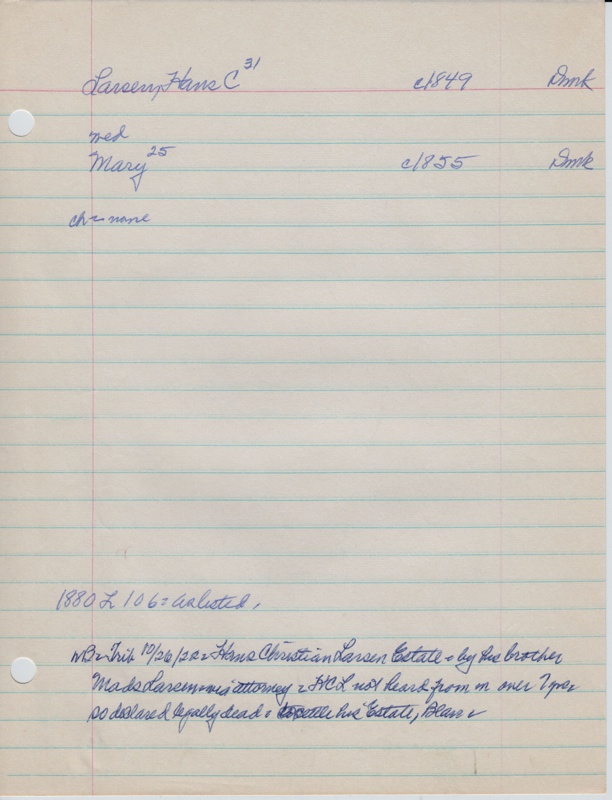 Larsen, Hans C 31 c1849 Dmk
med
Mary 25 c1855 Dmk
ch = none
1880 L 106 = as listed,
WB = Trib 10/26/22 = Hans Christian Larsen Estate = by his brother
Mads Larsen attorney = HCL not heard from in over 7 yrs
so declared legally dead = settle his Estate, Blair